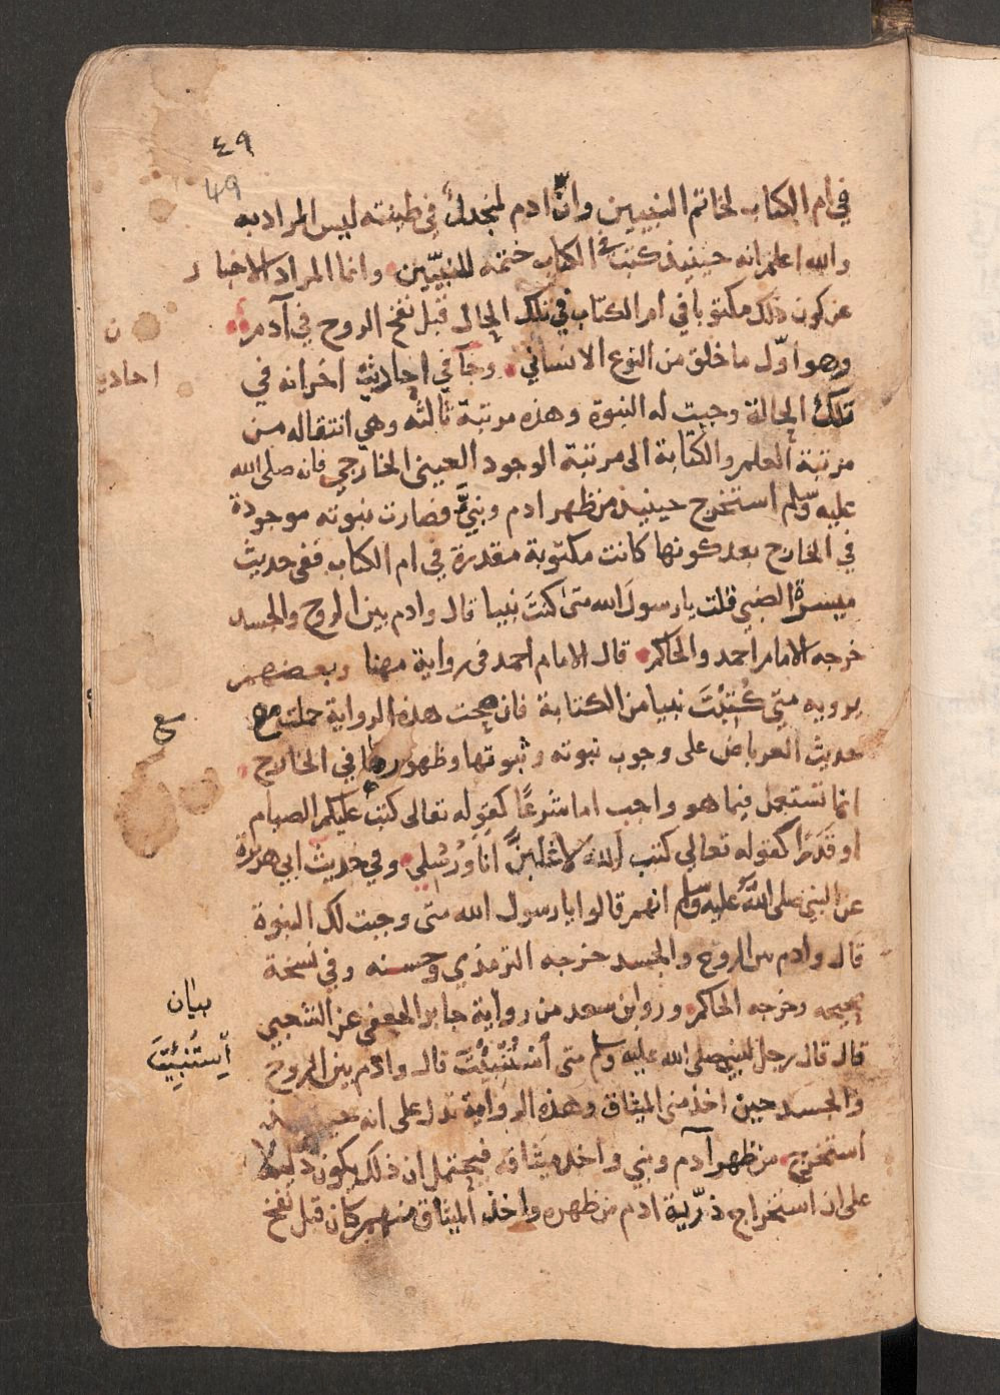 ٤٩
49
في ام الكتاب لخاتم النبيين وانّ ادم لمنجدل في طينته ليس المراد به
والله اعلم انه حينيذ كتب في ام الكتاب ختمه للنبيّين وانما المراد الاخبار
عن كون ذلك مكتوبا في ام الكتاب في تلك الحال قبل نفخ الروح في آدم
وهو اوّل ما خلق من النوع الانساني وجآ في احاديث اخر انه في
تلك الحالة وجبت له النبوة وهذه مرتبة ثالثه وهي انتقاله من
مرتبة العلم والكتابة الى مرتبة الوجود العيني الخارجي فانه صلى الله
عليه وسلم استخرج حينيذ من ظهر ادم ونبيَّ فصارت نبوته موجودة
في الخارج بعد كونها كانت مكتوبة مقدرة في ام الكتاب ففي حديث
ميسرة الضبي قلت يا رسول الله متى كنتَ نبيا قال وادم بين الروح والجسد
خرجه الامام احمد والحاكم قال الامام احمد في رواية مهنا وبعضهم
يرويه متى كُتِبْتَ نبيا من الكتابة فان صحت هذه الرواية حملت مع
حديث العرباض على وجوب نبوته وثبوتها وظهورها في الخارج
انما تستعمل فيما هو واجب اما شرعًا كقوله تعالى كتب عليكم الصيام
او قدَرًا كقوله تعالى كتب الله لاغلبنَّ انا ورُسُلي وفي حديث ابي هريرة
عن النبي صلى الله عليه وسلم انهم قالوا يا رسول الله متى وجبت لك النبوة
قال وادم بين الروح والجسد خرجه الترمذي وحسنه وفي نسخة
صحيحه وخرجه الحاكم وروا بن سعد من رواية جابر الجعفي عن الشعبي
قال قال رجل للنبي صلى الله عليه وسلم متى اُستُنْبِئْتَ قال وادم بين الروح
والجسد حين اخذ مني الميثاق وهذه الرواية تدل على انه حينيذ
استخرج من ظهر آدم ونبي واخذ ميثاقه فيحتمل ان ذلك يكون دليلا
على ان استخراج ذرّية ادم من ظهره واخذ الميثاق منهم كان قبل نفخ
ن
احاديث
مع
بيان
اُستُنبِئتَ